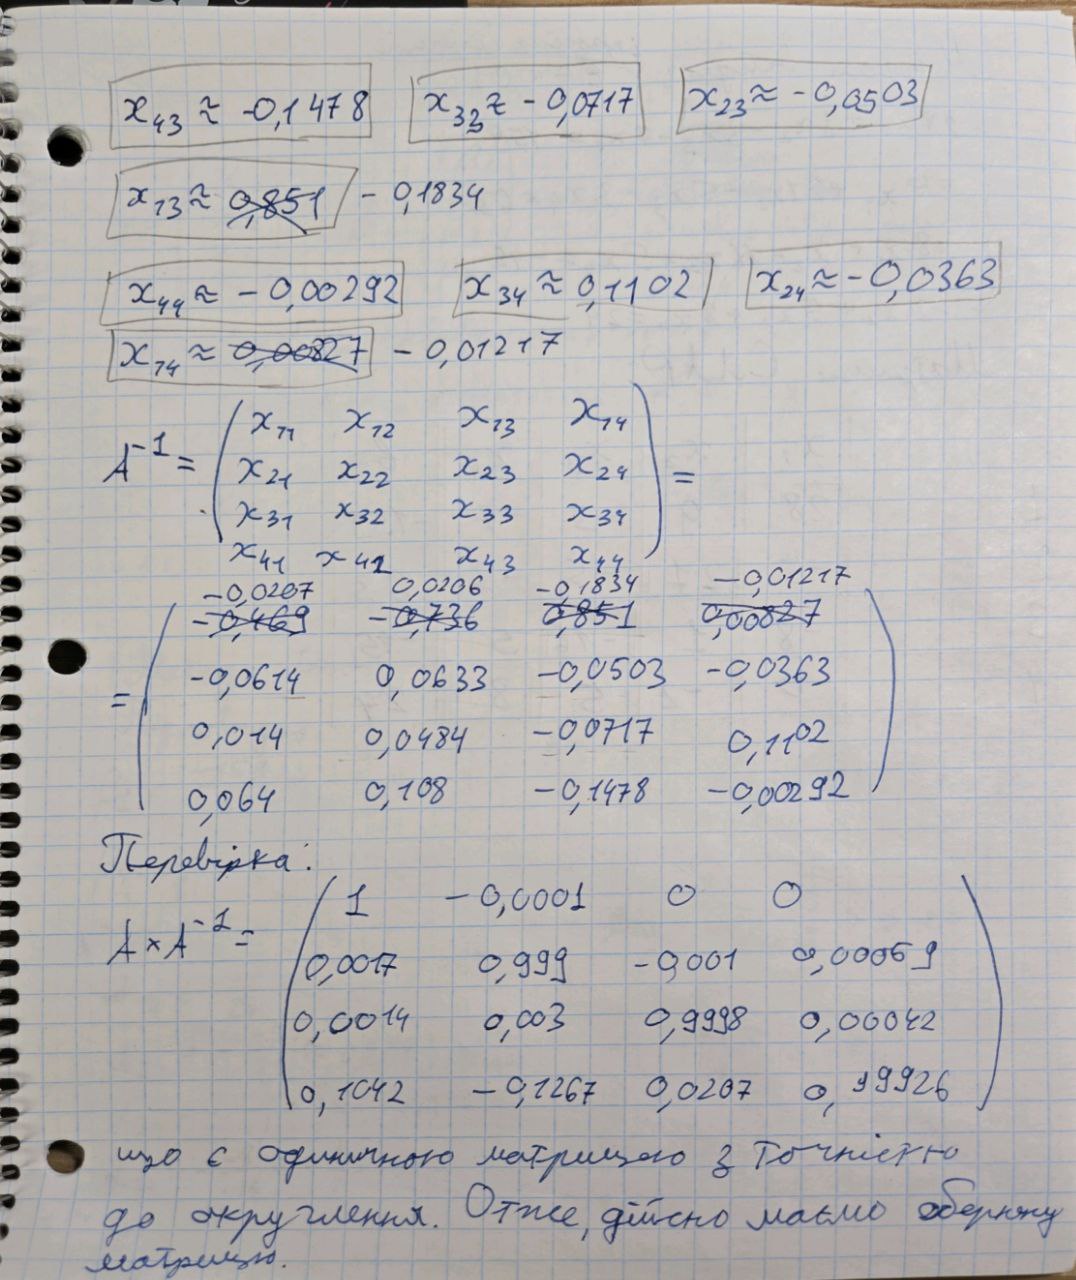 x₄₃ ≈ -0,1478 x₃₃ ≈ -0,0717 x₂₃ ≈ -0,0503
x₁₃ ≈ 0,851 -0,1834
x₄₄ ≈ -0,00292 x₃₄ ≈ 0,1102 x₂₄ ≈ -0,0363
x₁₄ ≈ 0,00827 -0,01217
x₁₁ x₁₂ x₁₃ x₁₄
A⁻¹ = x₂₁ x₂₂ x₂₃ x₂₄ =
x₃₁ x₃₂ x₃₃ x₃₄
x₄₁ x₄₂ x₄₃ x₄₄
-0,0207 0,0206 -0,1834 -0,01217
-0,469 -0,736 0,851 0,00827
= -0,0614 0,0633 -0,0503 -0,0363
0,014 0,0484 -0,0717 0,1102
0,064 0,108 -0,1478 -0,00292
Перевірка:
1 -0,0001 0 0
A × A⁻¹ = 0,0017 0,999 -0,001 0,00069
0,0014 0,003 0,9998 0,00042
0,1042 -0,1267 0,0207 0,99926
що є одиничною матрицею з точністю
до округлення. Отже, дійсно маємо обернену
матрицю.